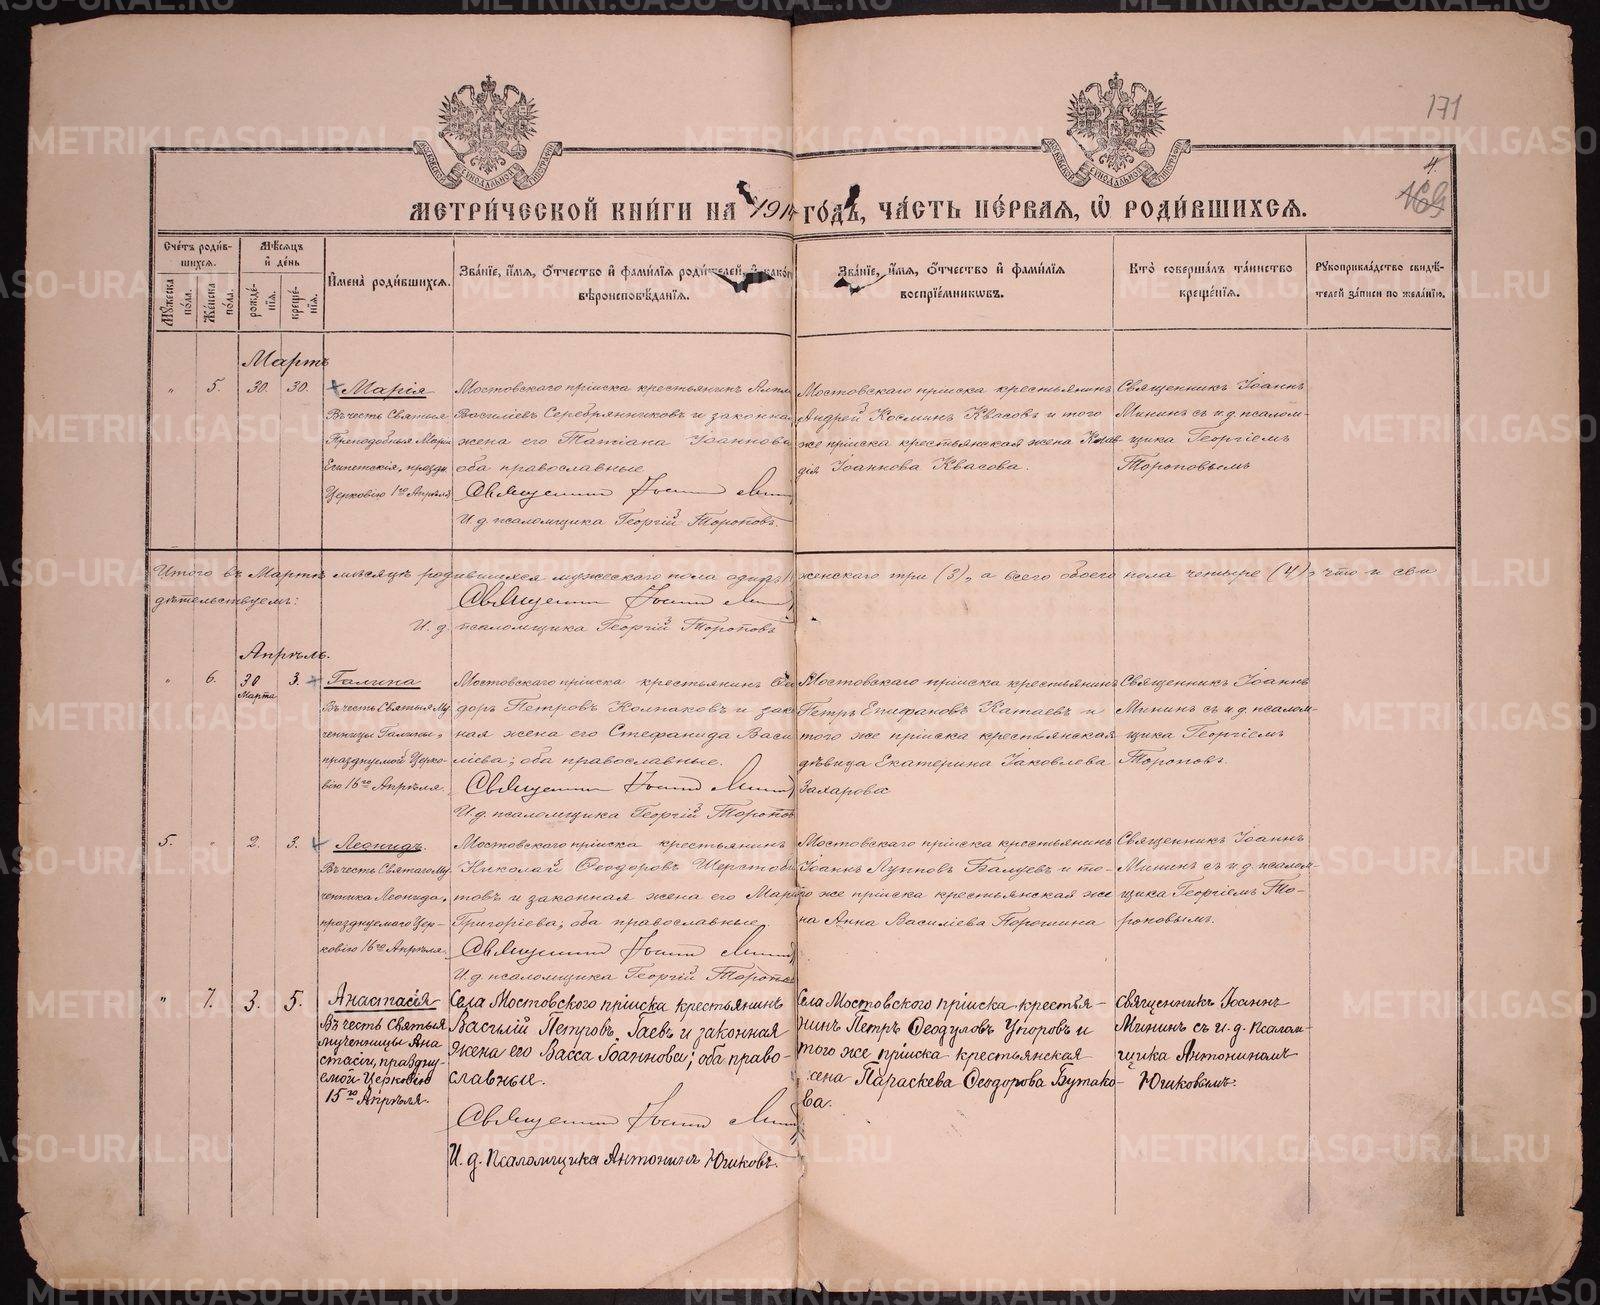 171
4.
МЕТРИ́ЧЕСКОЙ КНИ́ГИ НА 1914 ГО́ДЪ, ЧА́СТЬ ПЕ́РВАЯ, Ѡ҆ РОДИ́ВШИХСЯ.
Сче́тъ роди́в-
шихся.
Мꙋ́жеска по́ла.
Же́нска по́ла.
Мѣ́сяцъ
и҆ де́нь
рожде́-
нїя.
креще́-
нїя.
И҆мена̀ роди́вшихся.
Зва́нїе, и҆́мя, ѻ҆́тчество и҆ фами́лїя роди́телей, и҆ како́г
вѣроисповѣ́данїя.
Зва́нїе, и҆́мя, ѻ҆́тчество и҆ фами́лїя
воспрїе́мниковъ.
Кто̀ соверша́лъ та́инство
креще́нїя.
Рꙋкоприкла́дство свидѣ́-
телей за́писи по жела́нїю.
Мартъ
" 5. 30. 30. Марія
Въ честь Святыя
Преподобныя Маріи
Египетскія, праздн
Церковію 1го Апрѣля
Мостовскаго пріиска крестьянинъ
Василіевъ Серебрянниковъ и законная
жена его Татіана Іоаннова
оба православные
Священникъ Іоаннъ Мин
И. д. псаломщика Георгій Тороповъ.
Мостовскаго пріиска крестьянинъ
Андрей Космичъ Квасовъ и того
же пріиска крестьянская жена Клав
дія Іоаннова Квасова.
Священникъ Іоаннъ
Мининъ съ и. д. псалом-
щика Георгіемъ
Тороповымъ
Итого въ Мартѣ мѣсяцѣ родившихся мужескаго пола одинъ (1) женскаго три (3), а всего обоего пола четыре (4), что и сви
дѣтельствуемъ:
Священникъ Іоаннъ Мин
И. д. псаломщика Георгій Тороповъ
Апрѣль.
" 6. 30 Марта 3. Галина
Въ честь Святыя Му
ченницы Галины,
празднуемой Церко-
вію 16го Апрѣля.
Мостовскаго пріиска крестьянинъ Ѳео
доръ Петровъ Колпаковъ и закон
ная жена его Стефанида Васи
ліева; оба православные.
Священникъ Іоаннъ Минин
И. д. псаломщика Георгій Торопов
Мостовскаго пріиска крестьянинъ
Петръ Епифановъ Катаевъ и
того же пріиска крестьянская
дѣвица Екатерина Іаковлева
Захарова
Священникъ Іоаннъ
Мининъ съ и. д. псалом-
щика Георгіемъ
Тороповъ.
5. " 2. 3. Леонидъ.
Въ честь Святаго Му
ченника Леонида,
празднуемаго Цер-
ковію 16го Апрѣля.
Мостовскаго пріиска крестьянинъ
Николай Ѳеодоровъ Шерстоби
товъ и законная жена его Марія
Григоріева; оба православные.
Священникъ Іоаннъ Мин
И. д. псаломщика Георгій Торопов
Мостовскаго пріиска крестьянинъ
Іоаннъ Лупповъ Балуевъ и то-
го же пріиска крестьянская же
на Анна Василіева Порошина
Священникъ Іоаннъ
Мининъ съ и. д. псалом-
щика Георгіемъ То-
роповымъ.
" 7. 3. 5. Анастасія
Въ честь Святыя
мученницы Ана
стасіи, праздну-
емой Церковію
15го Апрѣля.
Села Мостовского пріиска крестьянинъ
Василій Петровъ Гаевъ и законная
жена его Васса Іоаннова; оба право-
славные.
Священникъ Іоаннъ Мин
И. д. псаломщика Антонинъ Юшковъ.
Села Мостовского пріиска крестья-
нинъ Петръ Ѳеодуловъ Упоровъ и
того же пріиска крестьянская
жена Параскева Ѳеодорова Бутако-
ва.
Священникъ Іоаннъ
Мининъ съ и. д. псалом-
щика Антониномъ
Юшковымъ.
METRIKI.GASO-URAL.RU